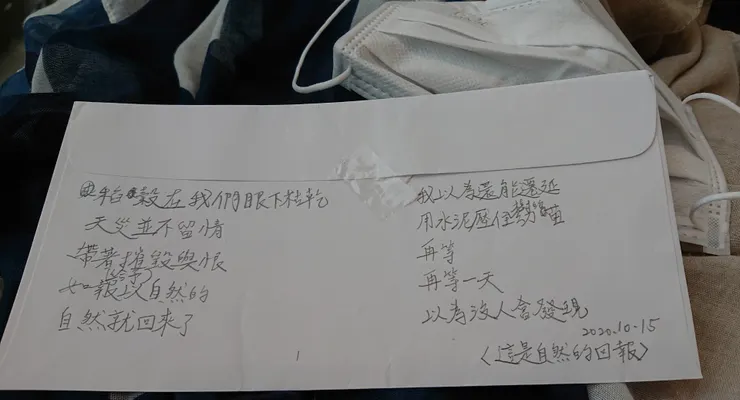 稻穀在我們眼下粒乾
天災並不留情
帶著摧毀與恨
如報以自然的
自然就回來了
1
我以為還能遷延
用水泥壓住苗
再等
再等一天
以為沒人會發現
2020.10-15
〈這是自然的回報〉